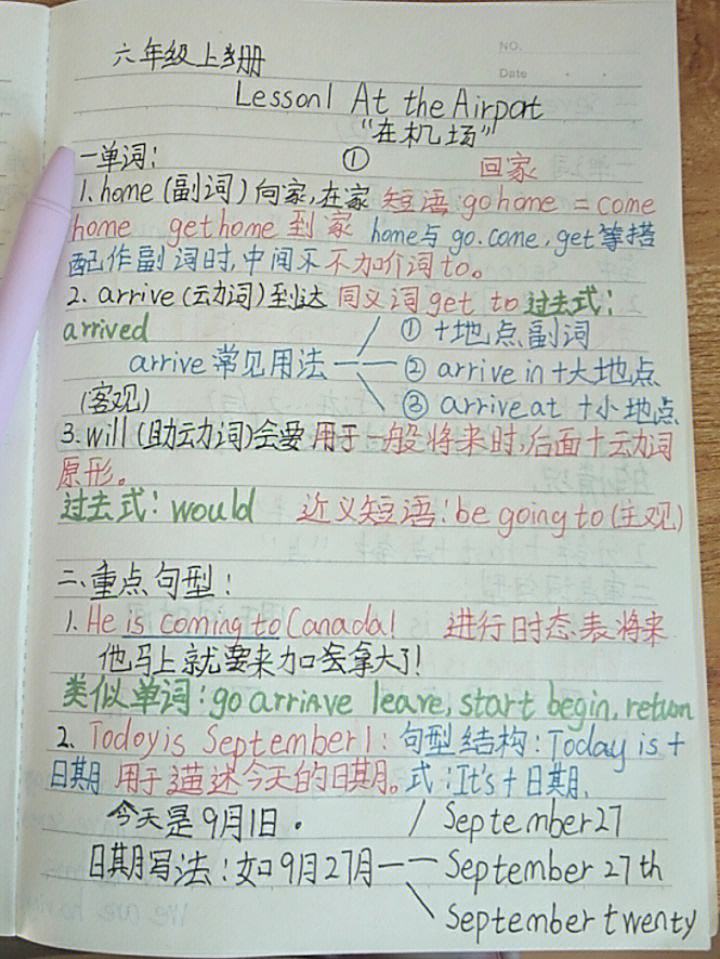 NO.
Date
六年级上册
Lesson1 At the Airport
"在机场"
一单词： ① 回家
1. home (副词) 向家,在家 短语 go home = come
home get home 到家 home与 go. come, get 等搭
配作副词时,中间不不加介词to。
2. arrive (动词) 到达 同义词 get to 过去式：
arrived ① +地点副词
arrive 常见用法 ② arrive in +大地点
(客观) ③ arrive at +小地点
3. will (助动词)会要 用于一般将来时,后面+动词
原形。
过去式：would 近义短语：be going to (主观)
二、重点句型：
1. He is coming to Canada! 进行时态表将来
他马上就要来加拿大了!
类似单词：go arrive leave, start begin, return
2. Today is September 1: 句型结构：Today is +
日期 用于描述今天的日期。式：It's + 日期.
今天是9月1日. September 27
日期写法：如9月27月 September 27 th
September twenty